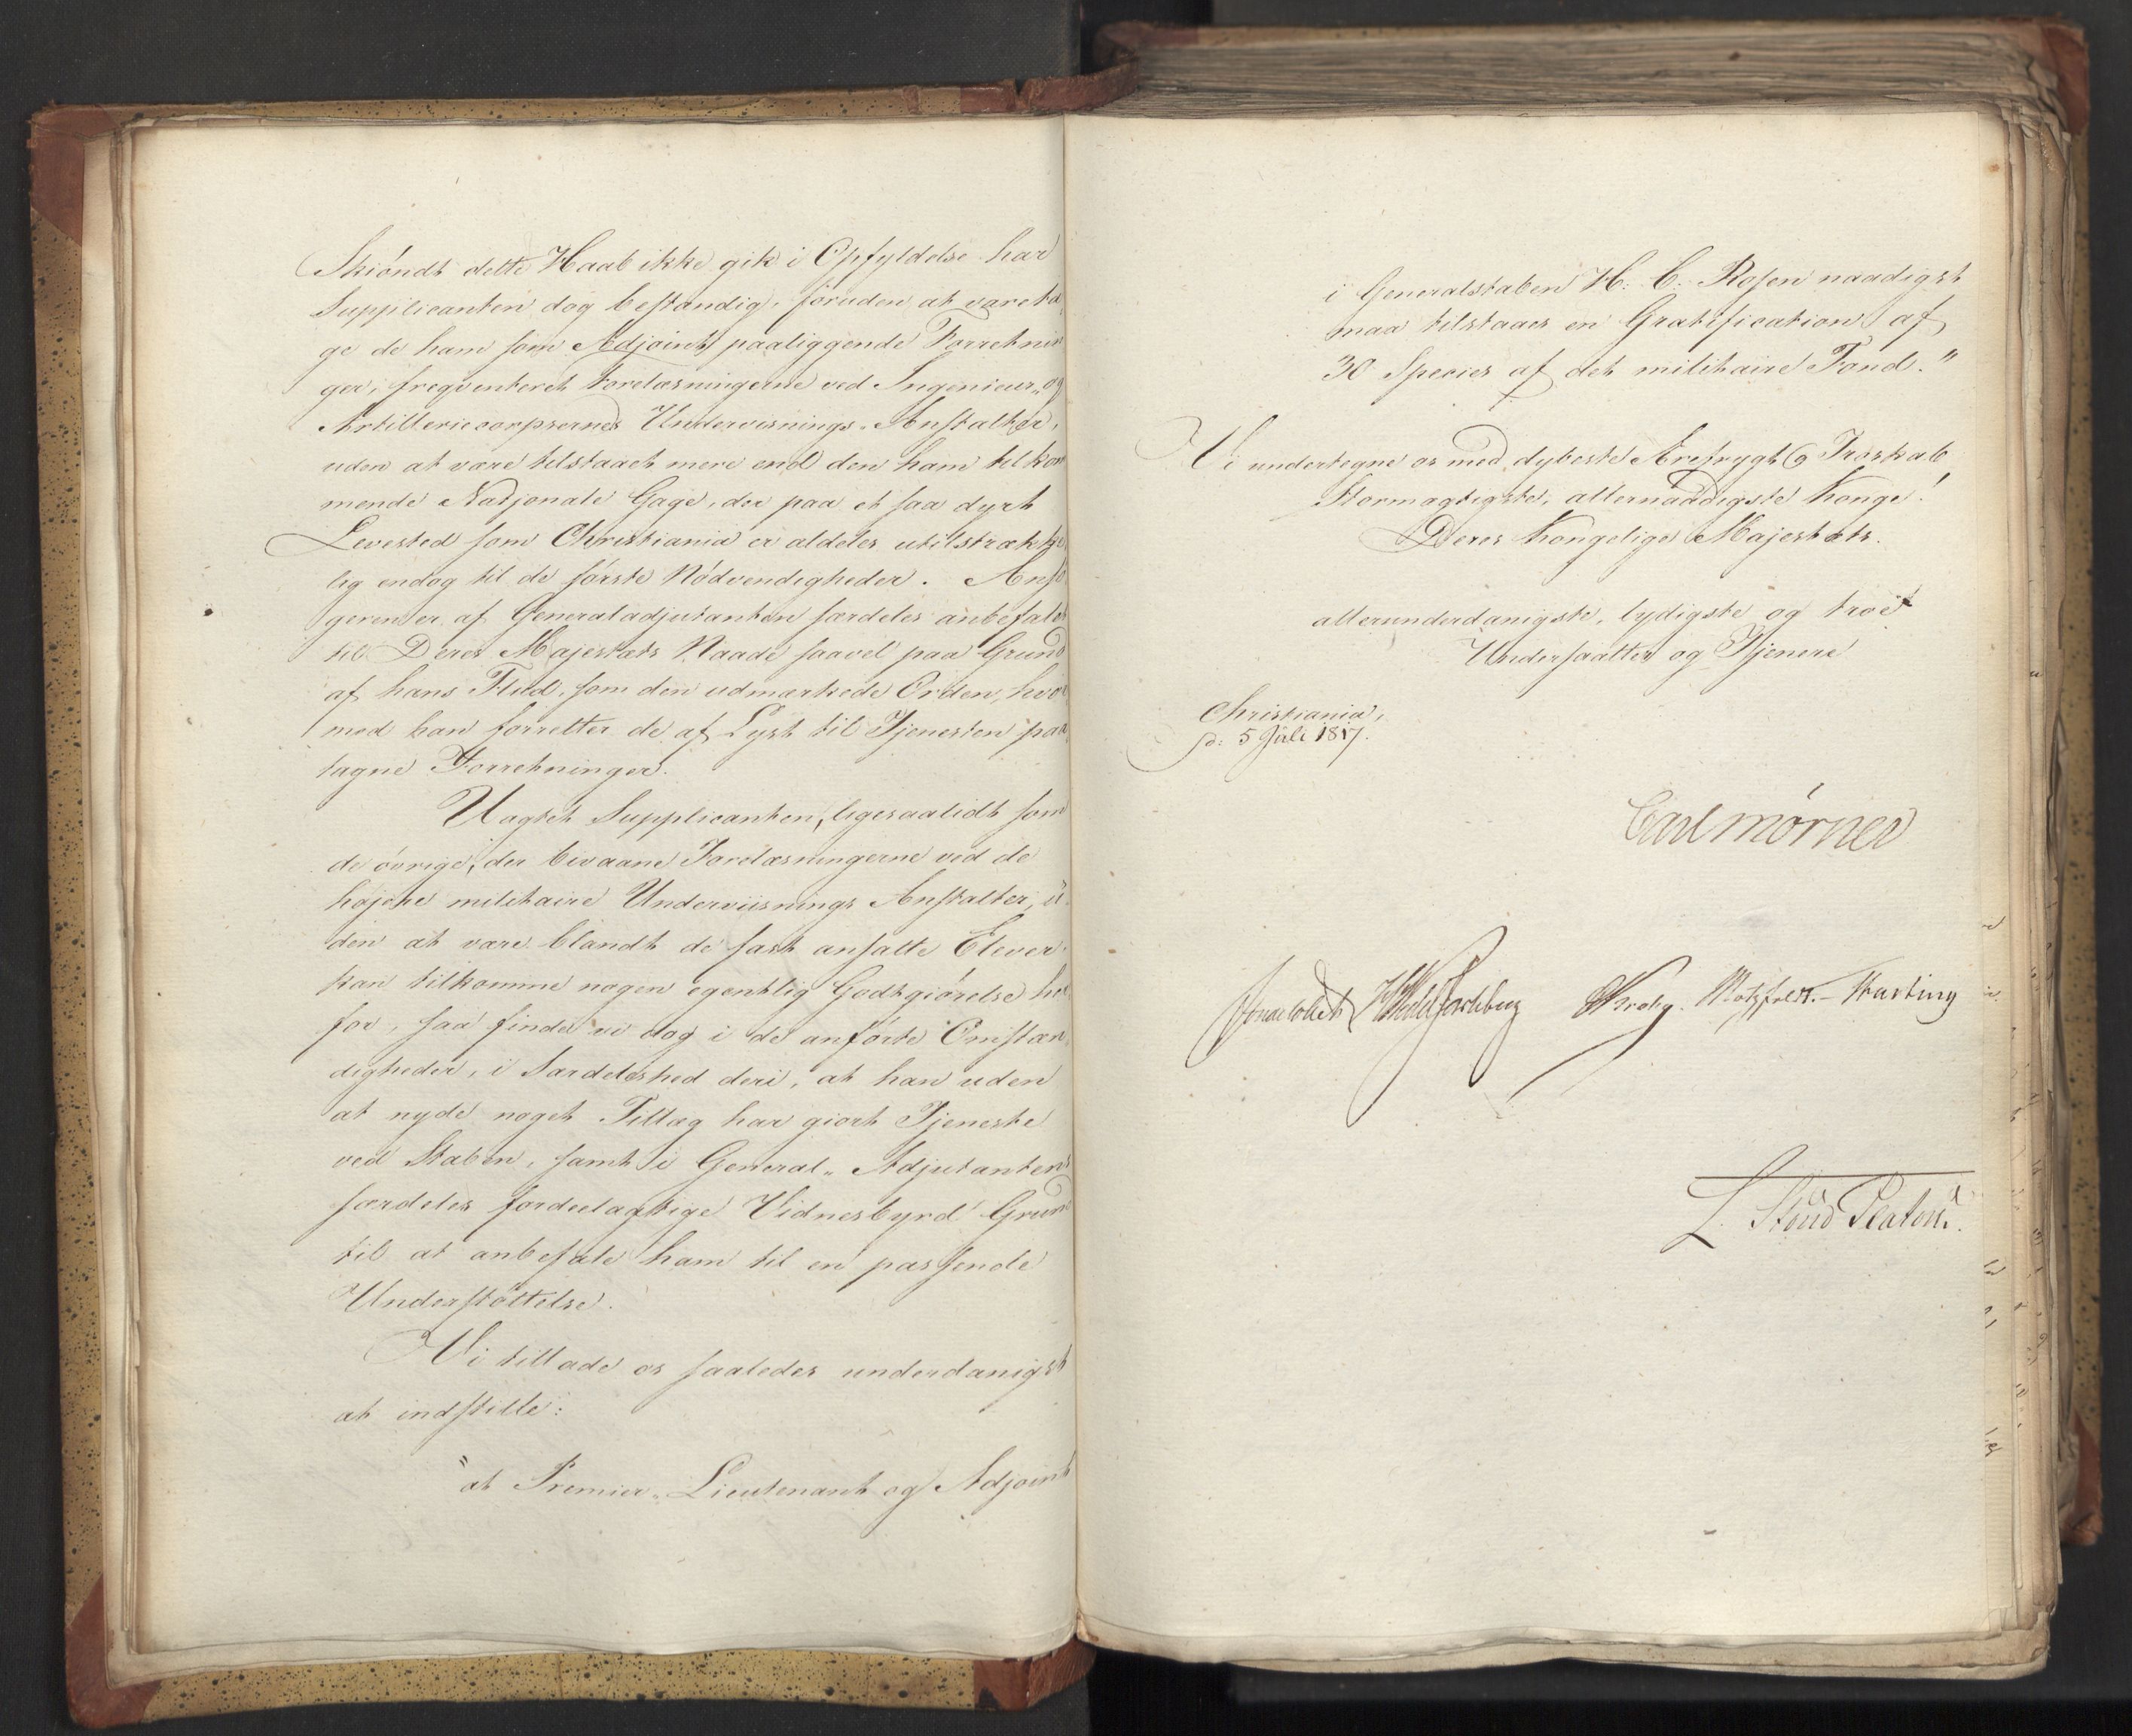 Skiöndt dette Haab ikke gik i Opfyldelse har
Supplicanten dog bestandig, foruden at vareta-
ge de ham som Adjoint paaliggende Forretnin
ger, freqventeret Forelæsningerne ved Ingenieur- og
Artilleriecorpsernes Undervisnings-Anstalter,
uden at være tilstaaet mere end den ham tilkom
mende Nationale Gage, der paa et saa dyrt
Levested som Christiania er aldeles utilstrække
lig endog til de förste Nödvendigheder. Ansö
geren er af Generaladjutanten særdeles anbefalet
til Deres Majestæts Naade saavel paa Grund
af hans Fliid, som den udmærkede Orden, hvor
med han forretter de af Lyst til Tjenesten paa
tagne Forretninger.
Uagtet Supplicanten, ligesaalidt som
de övrige, der bivaane Forelæsningerne ved de
højere militaire Underviisnings Anstalter, u
den at være blandt de fast ansatte Elever
kan tilkomme nogen egentlig Godtgiörelse her
for, saa finde vi dog i de anförte Omstæn
digheder, i Særdeleshed deri, at han uden
at nyde noget Tillæg har giort Tjeneste
ved Staben, samt i General-Adjutantens
særdeles fordeelagtige Vidnesbyrd Grund
til at anbefale ham til en passende
Understöttelse.
Vi tillade os saaledes underdanigst
at indstille:
"at Premier-Lieutenant og Adjoint
i Generalstaben H: C: Rosen naadigst
maa tilstaaes en Gratification af
30 Species af det militaire Fond."
Vi undertegne os med dybeste Ærefrygt og Troskab
Stormægtigste, allernaadigste Konge!
Deres Kongelige Majestæts.
allerunderdanigste, lydigste og troe
Undersaatter og Tjenere
Christiania,
d: 5 Juli 1817.
Carl Mörner
Jonas Collett HWedel Jarlsberg Krohg. Motzfeldt.- Hansteen
L. Stoud Platou.